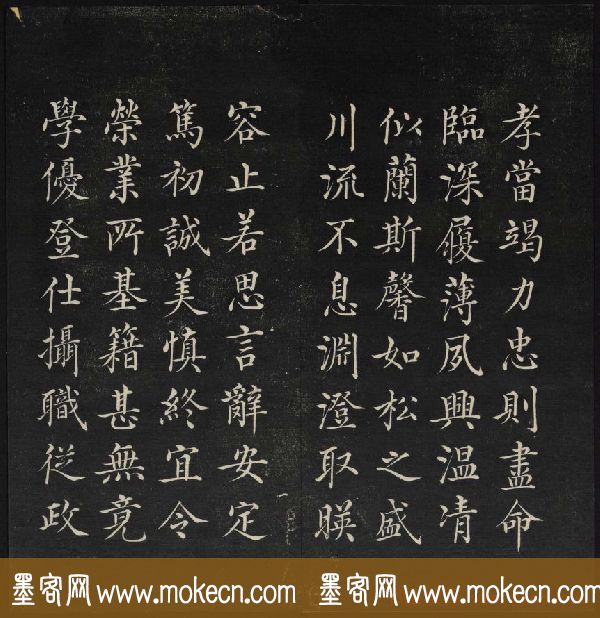 孝當竭力忠則盡命
臨深履薄夙興温凊
似蘭斯馨如松之盛
川流不息淵澄取暎
容止若思言辭安定
篤初誠美慎終宜令
榮業所基籍甚無竟
學優登仕攝職從政
墨客网 www.mokecn.com 墨客网 www.mokecn.com